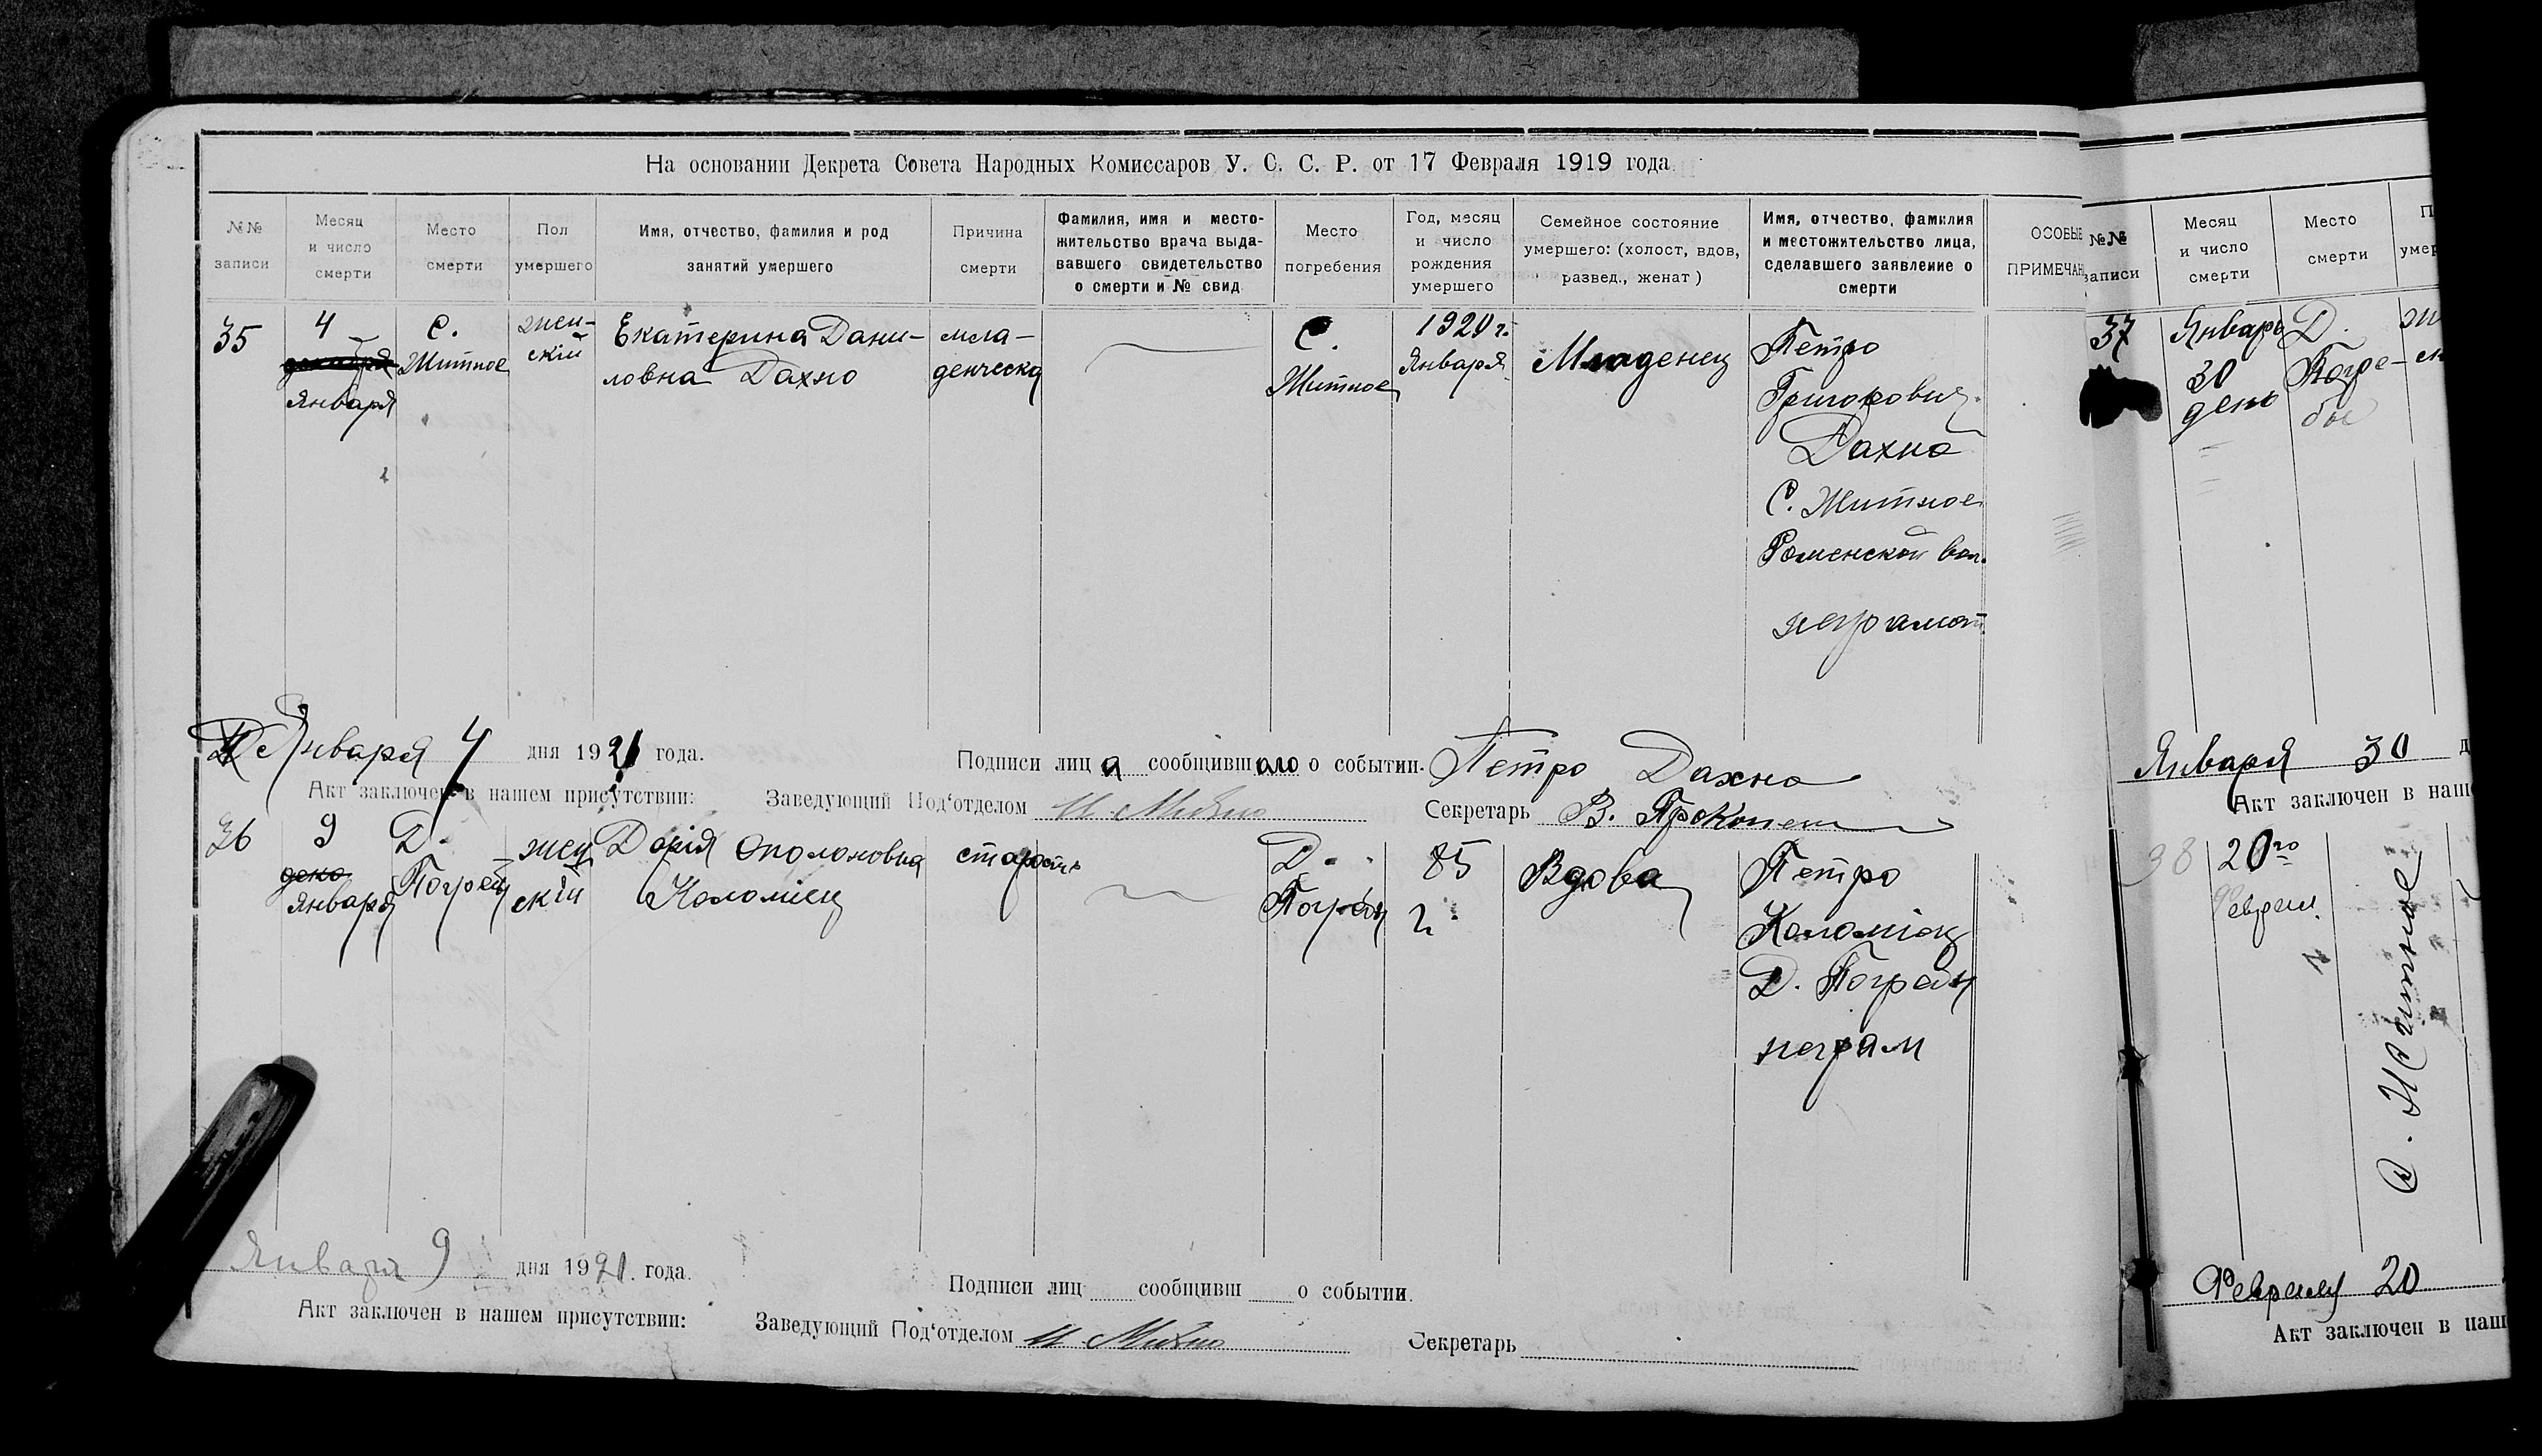 На основании Декрета Совета Народных Комиссаров У. С. С. Р. от 17 Февраля 1919 года
№№ записи
Месяц и число смерти
Место смерти
Пол умершего
Имя, отчество, фамилия и род занятий умершего
Причина смерти
Фамилия, имя и место-
жительство врача выда-
вавшего свидетельство
о смерти и № свид.
Место погребения
Год, месяц и число рождения умершего
Семейное состояние
умершего: (холост, вдов,
развед., женат)
Имя, отчество, фамилия
и местожительство лица,
сделавшего заявление о
смерти
ОСОБЫЕ
ПРИМЕЧАН
35
4
декабря
Января
С.
Житное
жен-
скій
Екатерина Дани-
ловна Дахно
мла-
денческа
С.
Житное
1920 г.
Января
Младенец
Петро
Григорович
Дахно
С. Житное
Роменской вол.
неграмот.
Января 4 дня 1921 года.
Подписи лица сообщившаго о событии. Петро Дахно
Акт заключен в нашем присутствии: Заведующий Под'отделом
Секретарь В.
36
9
дека
Января
Д.
Погребы
жен
скій
Дарія
Коломіец
старость
Д.
Погребы
85
г.
Вдова
Петро
Коломіец
Д. Погребы
неграм
Января 9 дня 1921. года.
Подписи лиц сообщивш о событии.
Акт заключен в нашем присутствии: Заведующий Под'отделом
Секретарь
№№ записи
Месяц и число смерти
Место смерти
П
умер
37
Январь
30
день
Д.
Погре-
бы
Января 30 д
Акт заключен в наш
38
20го
Феврал.
с. Житное
Февраля 20
Акт заключен в наш